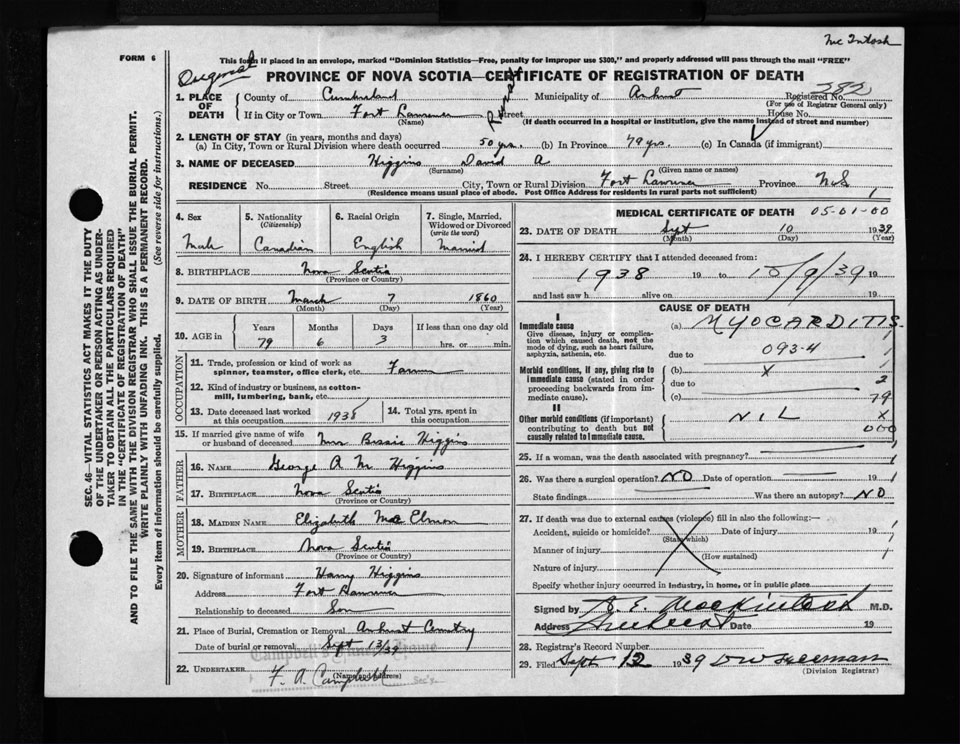 Mc Intosh
FORM 6
This form if placed in an envelope, marked "Dominion Statistics—Free, penalty for improper use $300," and properly addressed will pass through the mail "FREE"
Original
PROVINCE OF NOVA SCOTIA—CERTIFICATE OF REGISTRATION OF DEATH
382
1. PLACE OF DEATH
County of Cumberland Municipality of Amherst Registered No.
(For use of Registrar General only)
If in City or Town Fort Lawrence Street House No.
(Name) (If death occurred in a hospital or institution, give the name instead of street and number)
2. LENGTH OF STAY (in years, months and days)
(a) In City, Town or Rural Division where death occurred 50 yrs. (b) In Province 79 yrs. (c) In Canada (if immigrant)
3. NAME OF DECEASED Higgins David A
(Surname) (Given name or names)
RESIDENCE No. Street City, Town or Rural Division Fort Lawrence Province N.S.
(Residence means usual place of abode. Post Office Address for residents in rural parts not sufficient)
1
4. Sex Male
5. Nationality (Citizenship) Canadian
6. Racial Origin English
7. Single, Married, Widowed or Divorced (write the word) Married
8. BIRTHPLACE Nova Scotia
(Province or Country)
9. DATE OF BIRTH March 7 1860
(Month) (Day) (Year)
10. AGE in Years Months Days If less than one day old
79 6 3 hrs. or min.
OCCUPATION
11. Trade, profession or kind of work as spinner, teamster, office clerk, etc. Farmer
12. Kind of industry or business, as cotton-mill, lumbering, bank, etc.
13. Date deceased last worked at this occupation 1938
14. Total yrs. spent in this occupation
15. If married give name of wife or husband of deceased Mrs Bessie Higgins
FATHER
16. NAME George R. M. Higgins
17. BIRTHPLACE Nova Scotia
(Province or Country)
MOTHER
18. MAIDEN NAME Elizabeth McElmon
19. BIRTHPLACE Nova Scotia
(Province or Country)
20. Signature of informant Harry Higgins
Address Fort Lawrence
Relationship to deceased Son
21. Place of Burial, Cremation or Removal Amherst Cemetry
Date of burial or removal Sept 13/39
Campbell's Funeral Home
22. UNDERTAKER F. A. Campbell
(Name and address)
MEDICAL CERTIFICATE OF DEATH 05-01-00
23. DATE OF DEATH Sept 10 1939
(Month) (Day) (Year)
24. I HEREBY CERTIFY that I attended deceased from:
1938 19 to 10/9/39 19
and last saw h alive on 19
CAUSE OF DEATH
I
Immediate cause
Give disease, injury or complication which caused death, not the mode of dying, such as heart failure, asphyxia, asthenia, etc.
(a) MYOCARDITIS.
due to 093-4
Morbid conditions, if any, giving rise to immediate cause (stated in order proceeding backwards from immediate cause).
(b) X
due to
(c)
1
1
2
79
X
000
II
Other morbid conditions (if important) contributing to death but not causally related to immediate cause.
NIL
25. If a woman, was the death associated with pregnancy?
26. Was there a surgical operation? NO Date of operation 19
State findings Was there an autopsy? NO
27. If death was due to external causes (violence) fill in also the following:—
Accident, suicide or homicide? Date of injury 19
(State which)
Manner of injury
(How sustained)
Nature of injury
Specify whether injury occurred in industry, in home, or in public place
Signed by A. E. Mackintosh M.D.
Address Amherst Date 19
28. Registrar's Record Number
29. Filed Sept 12 1939 DW Freeman
(Division Registrar)
SEC. 46—VITAL STATISTICS ACT MAKES IT THE DUTY
OF THE UNDERTAKER OR PERSON ACTING AS UNDER-
TAKER TO OBTAIN ALL THE PARTICULARS REQUIRED
IN THE "CERTIFICATE OF REGISTRATION OF DEATH"
AND TO FILE THE SAME WITH THE DIVISION REGISTRAR WHO SHALL ISSUE THE BURIAL PERMIT.
WRITE PLAINLY WITH UNFADING INK. THIS IS A PERMANENT RECORD.
Every item of information should be carefully supplied. (See reverse side for instructions.)